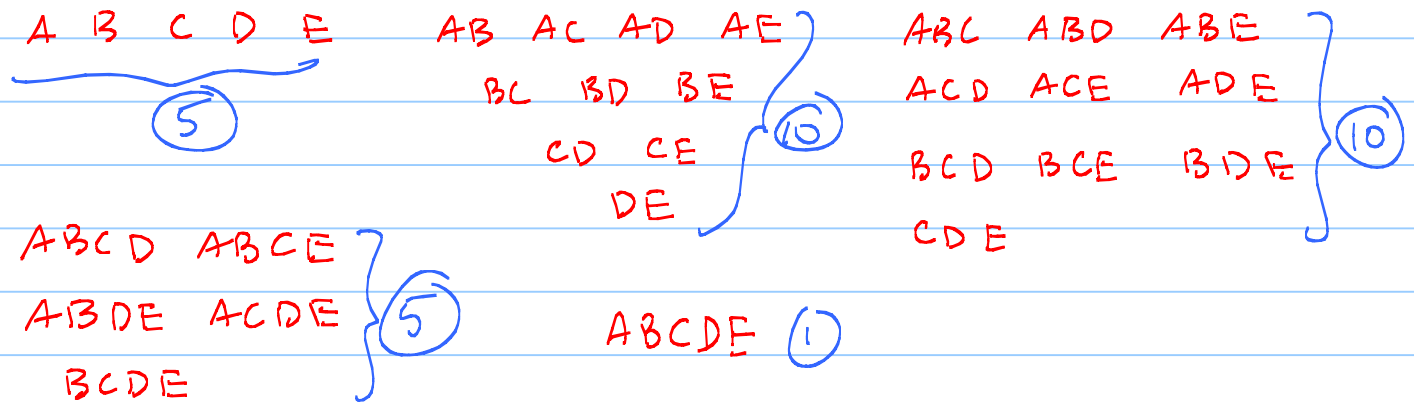 A B C D E
5
AB AC AD AE
BC BD BE
CD CE
DE
10
ABC ABD ABE
ACD ACE ADE
BCD BCE BDE
CDE
10
ABCD ABCE
ABDE ACDE
BCDE
5
ABCDE 1